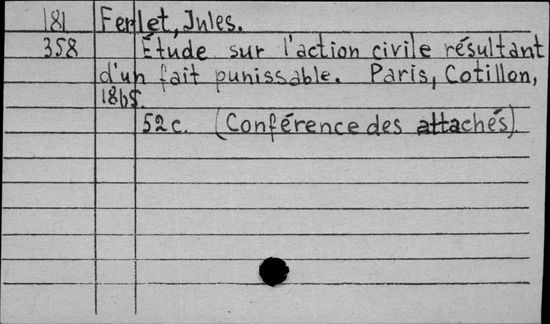 181 Ferlet, Jules.
358 Étude sur l'action civile résultant
d'un fait punissable. Paris, Cotillon,
1865.
52c. (Conférence des attachés)